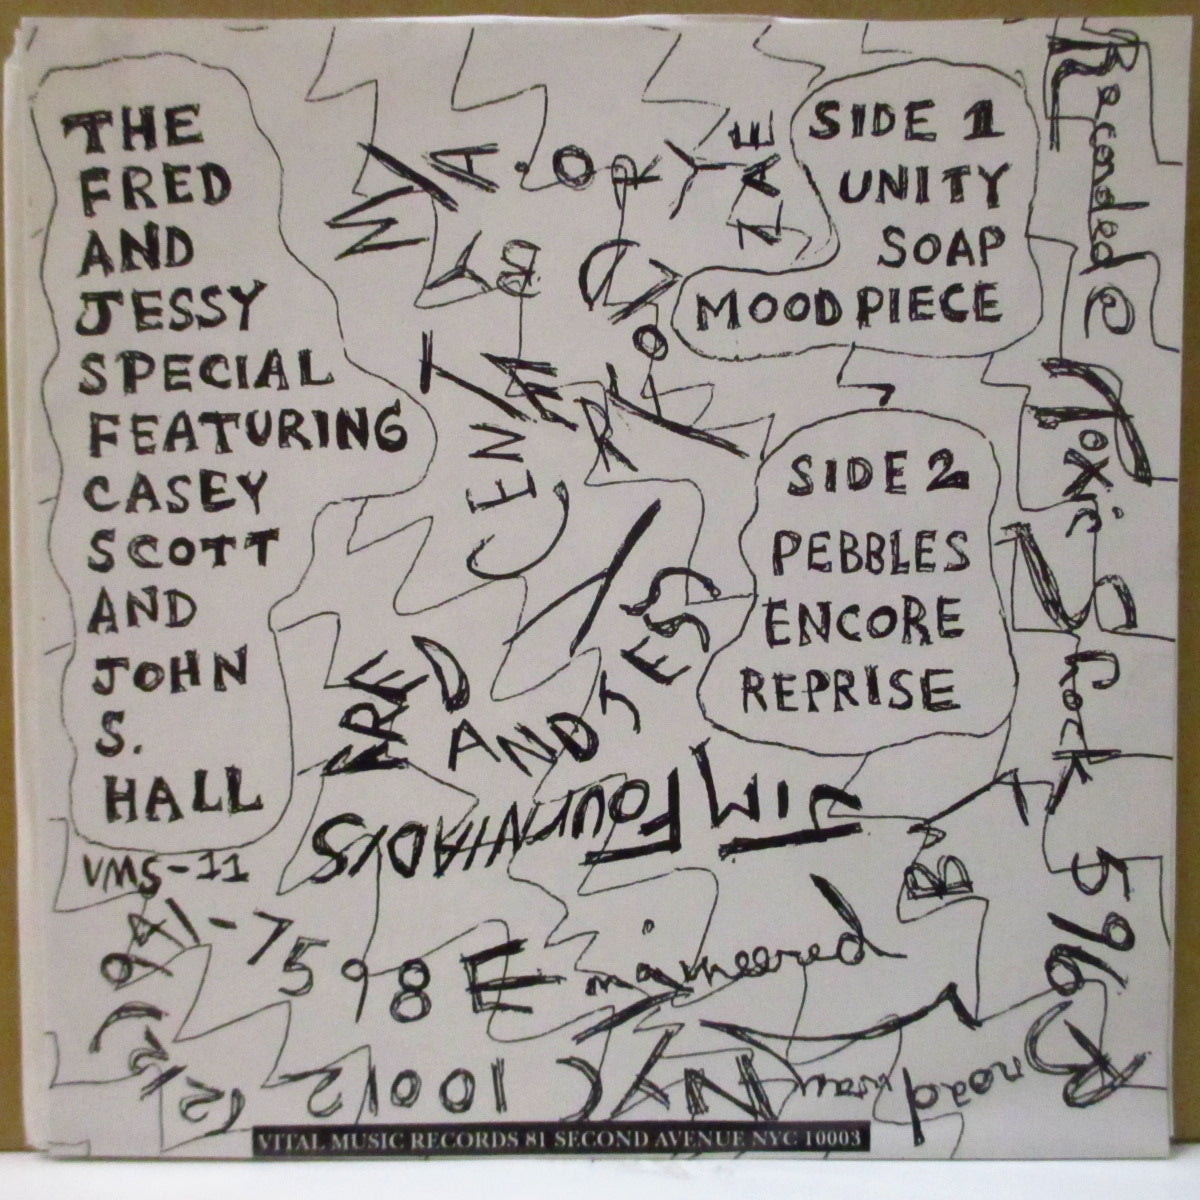 THE
FRED
AND
JESSY
SPECIAL
FEATURING
CASEY
SCOTT
AND
JOHN
S.
HALL
VMS-11
SIDE 1
UNITY
SOAP
MOOD PIECE
SIDE 2
PEBBLES
ENCORE
REPRISE
Recorded @
Toxic Shock
596
Broadway
NYC 10012
(212) 941-7598
Engineered
BY
JIM FOURNIADIS
FRED
AND JESSY
VITAL MUSIC RECORDS 81 SECOND AVENUE NYC 10003